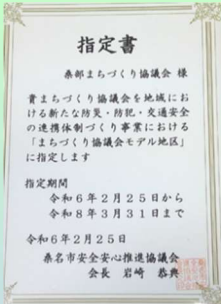 指定書
桑部まちづくり協議会 様
貴まちづくり協議会を地域にお
ける新たな防災・防犯・交通安全
の連携体制づくり事業における
「まちづくり協議会モデル地区」
に指定します
指定期間
令和6年2月25日から
令和8年3月31日まで
令和6年2月25日
桑名市安全安心推進協議会
会長 岩﨑 恭典